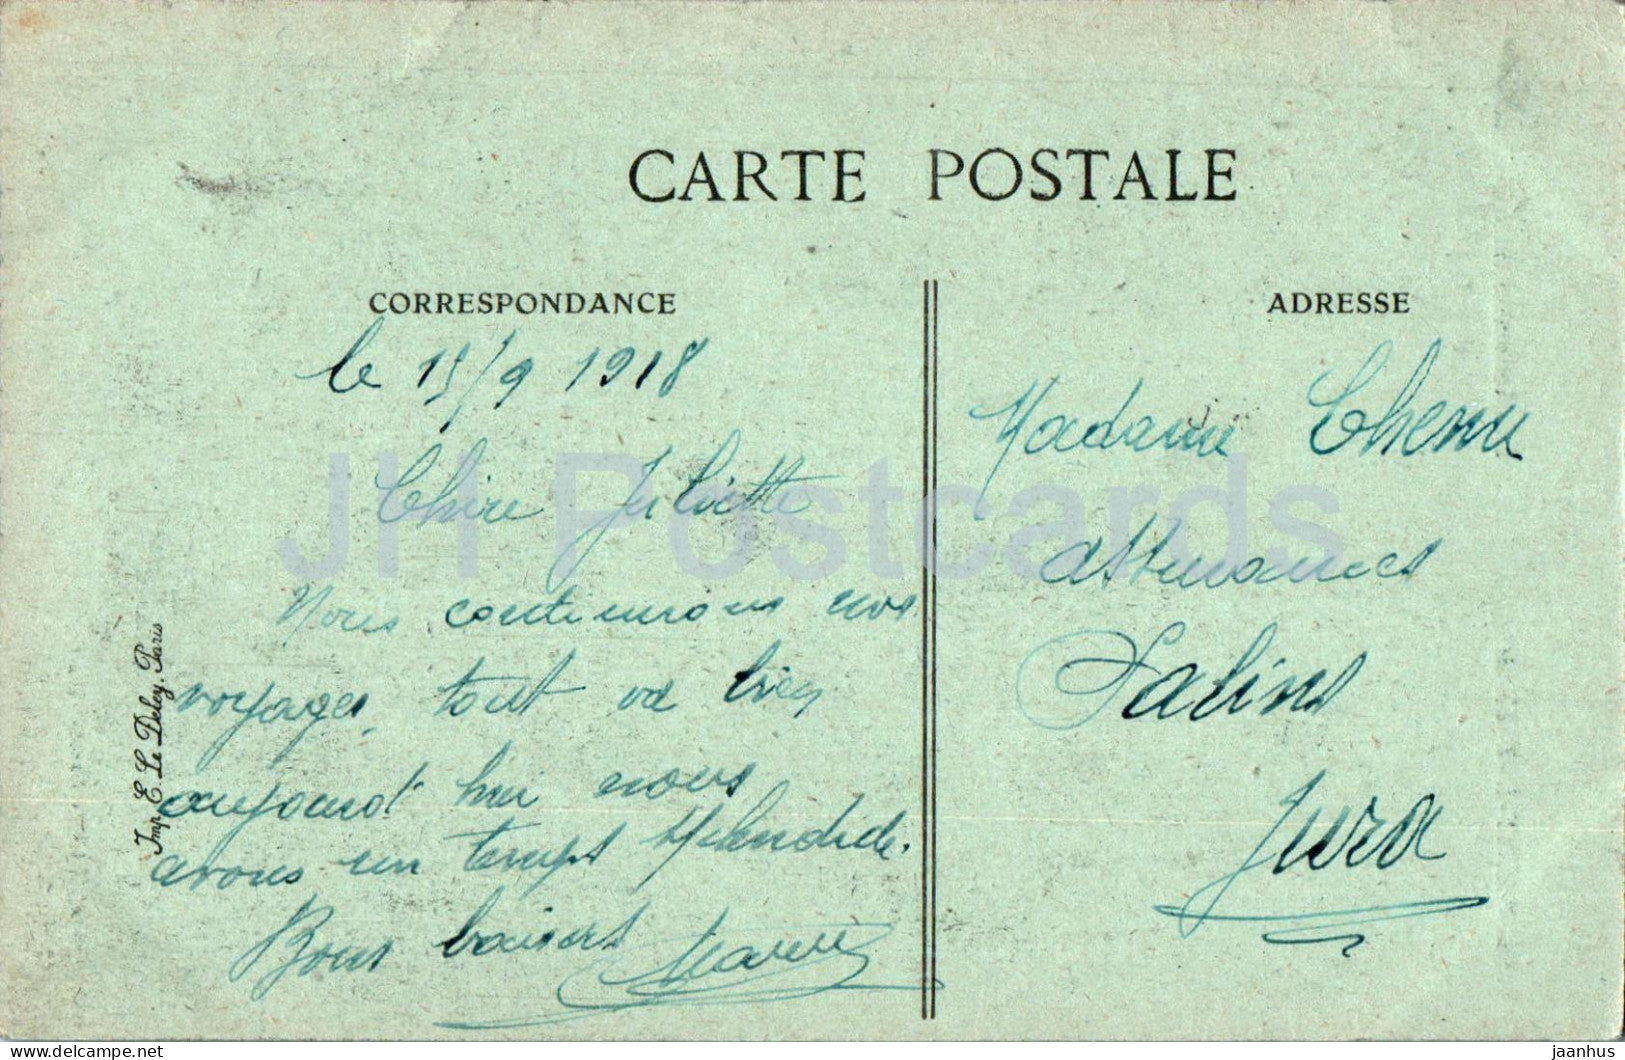 CARTE POSTALE
CORRESPONDANCE
le 15/9 1918
Chère Juliette
Nous continuons nos
voyages, tout va bien
aujourd'hui nous
avons un temps splendide.
Bons baisers
ADRESSE
Madame Chenu
Salins
Jura
Imp. E. Le Deley, Paris
JH Postcards
delcampe.net
jaanhus